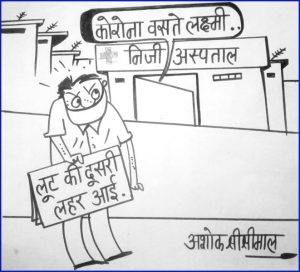 कोरोना वसते लक्ष्मी..
निजी अस्पताल
लूट की दूसरी
लहर आई.
अशोक श्रीश्रीमाल